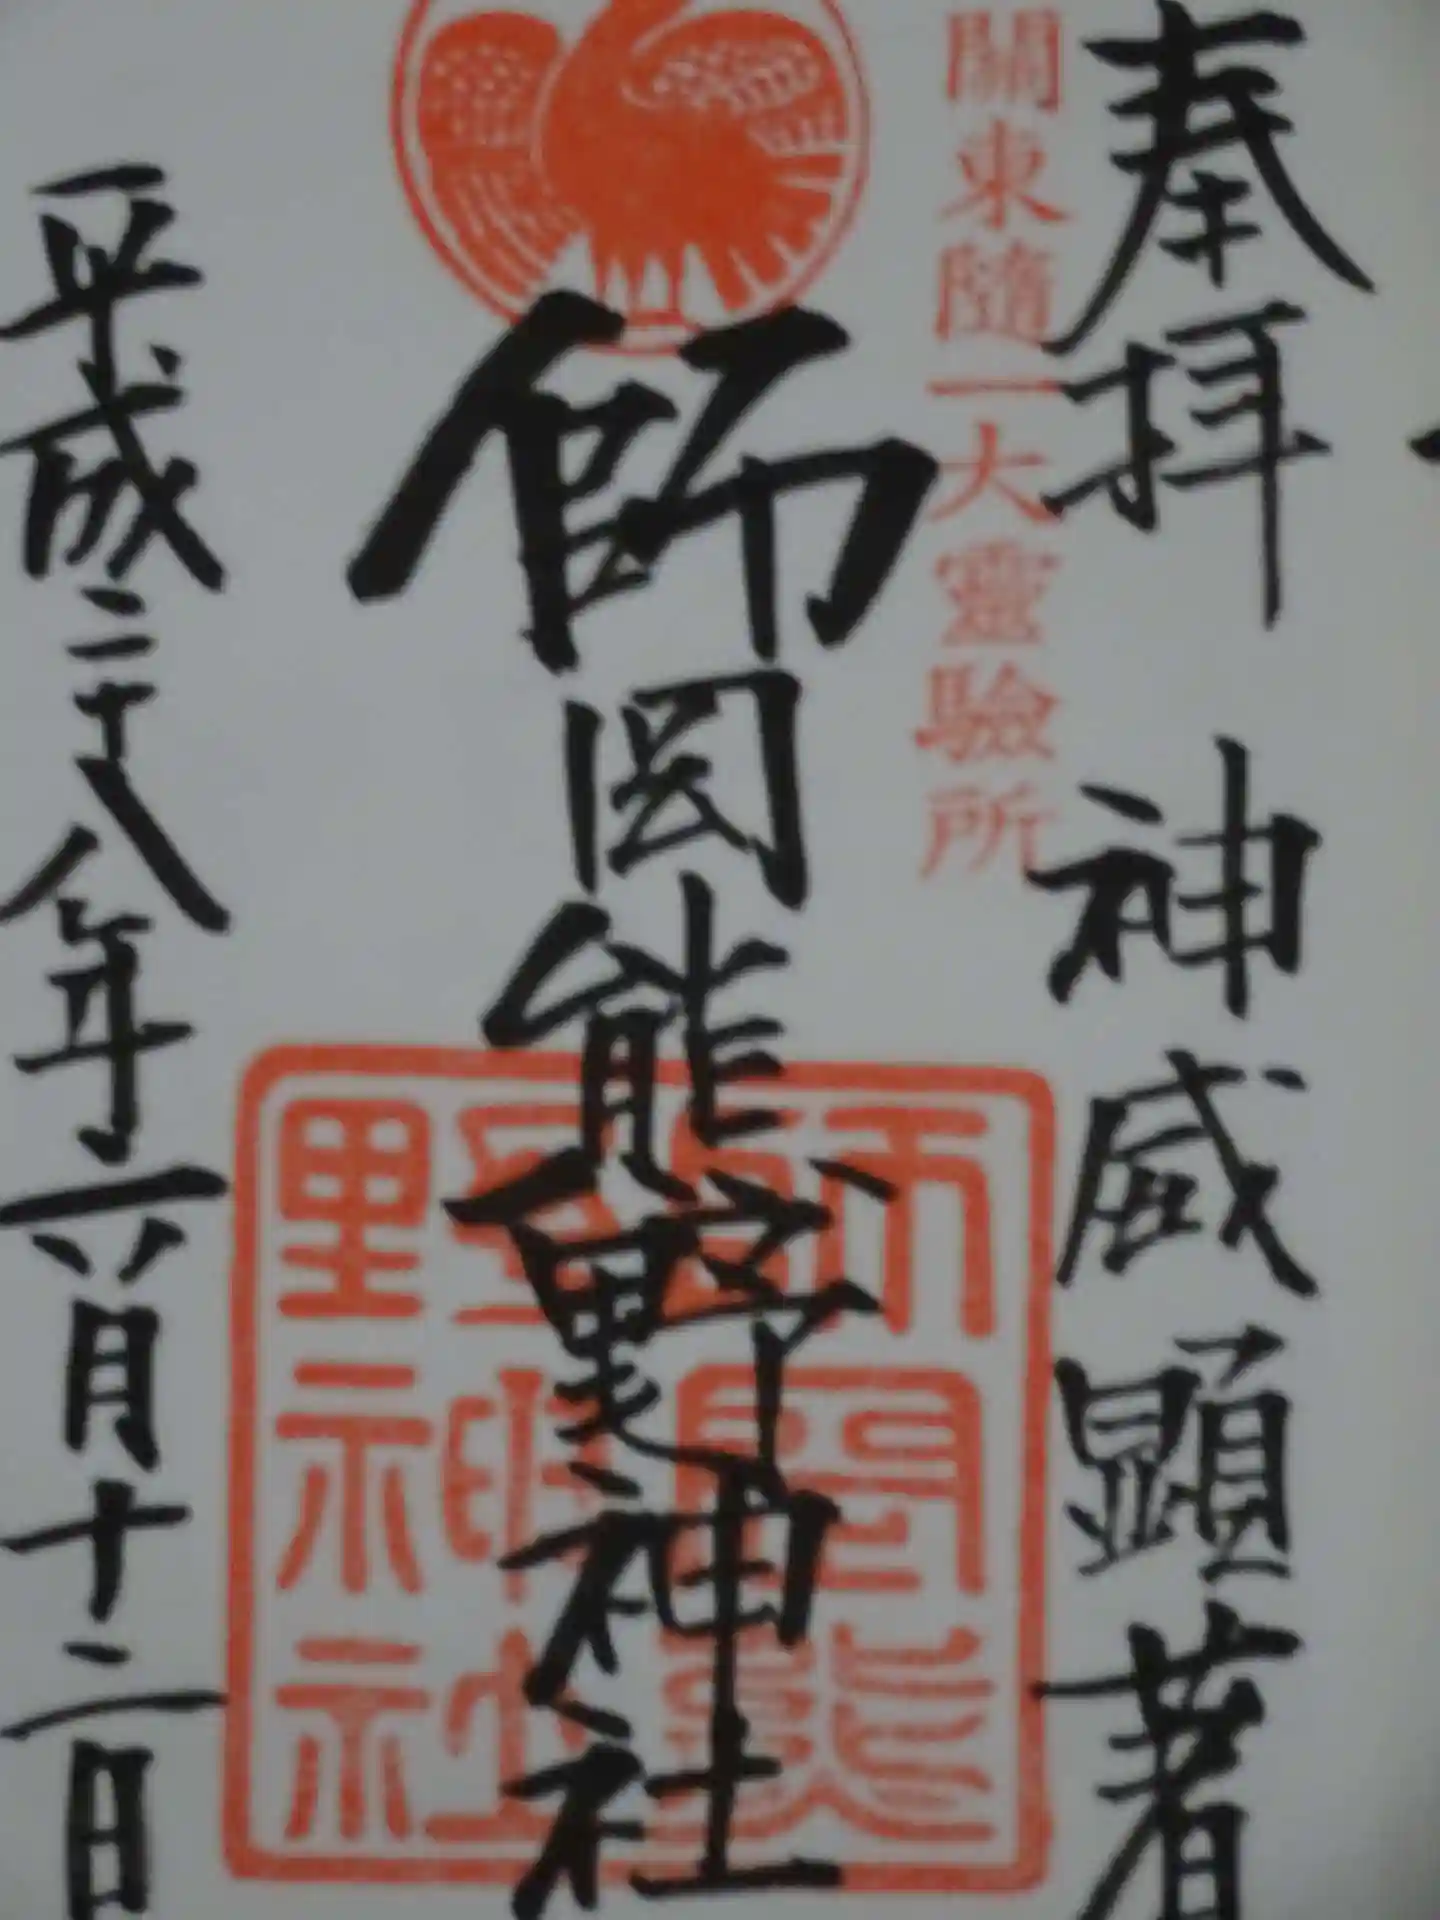 奉拝　神威顕著
關東隨一大靈驗所
師岡熊野神社
師岡熊野神社
平成二十八年六月十二日